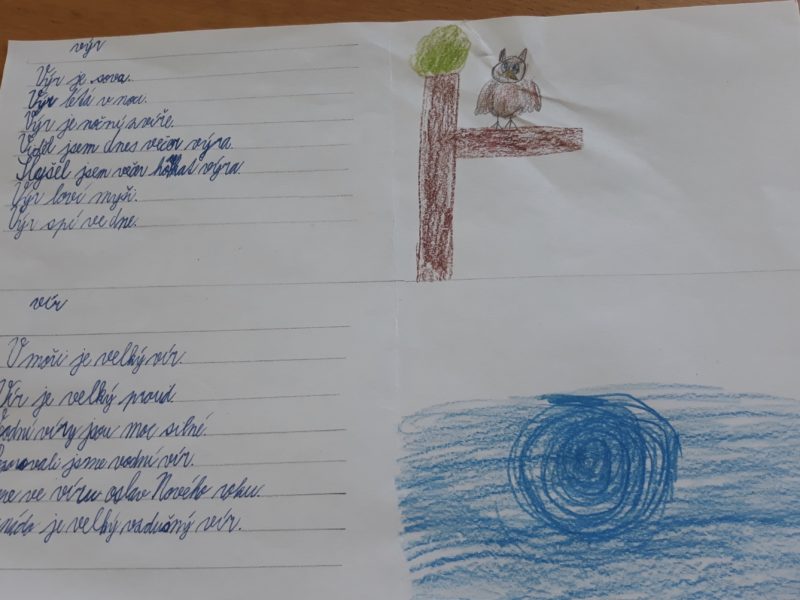 výr
Výr je sova.
Výr létá v noci.
Výr je noční zvíře.
Viděl jsem dnes večer výra.
Slyšel jsem večer houkat výra.
Výr loví myši.
Výr spí ve dne.
vír
V moři je velký vír.
Vír je velký proud.
Vodní víry jsou moc silné.
jsme vodní vír.
ve víru oslav Nového roku.
je velký vzdušný vír.